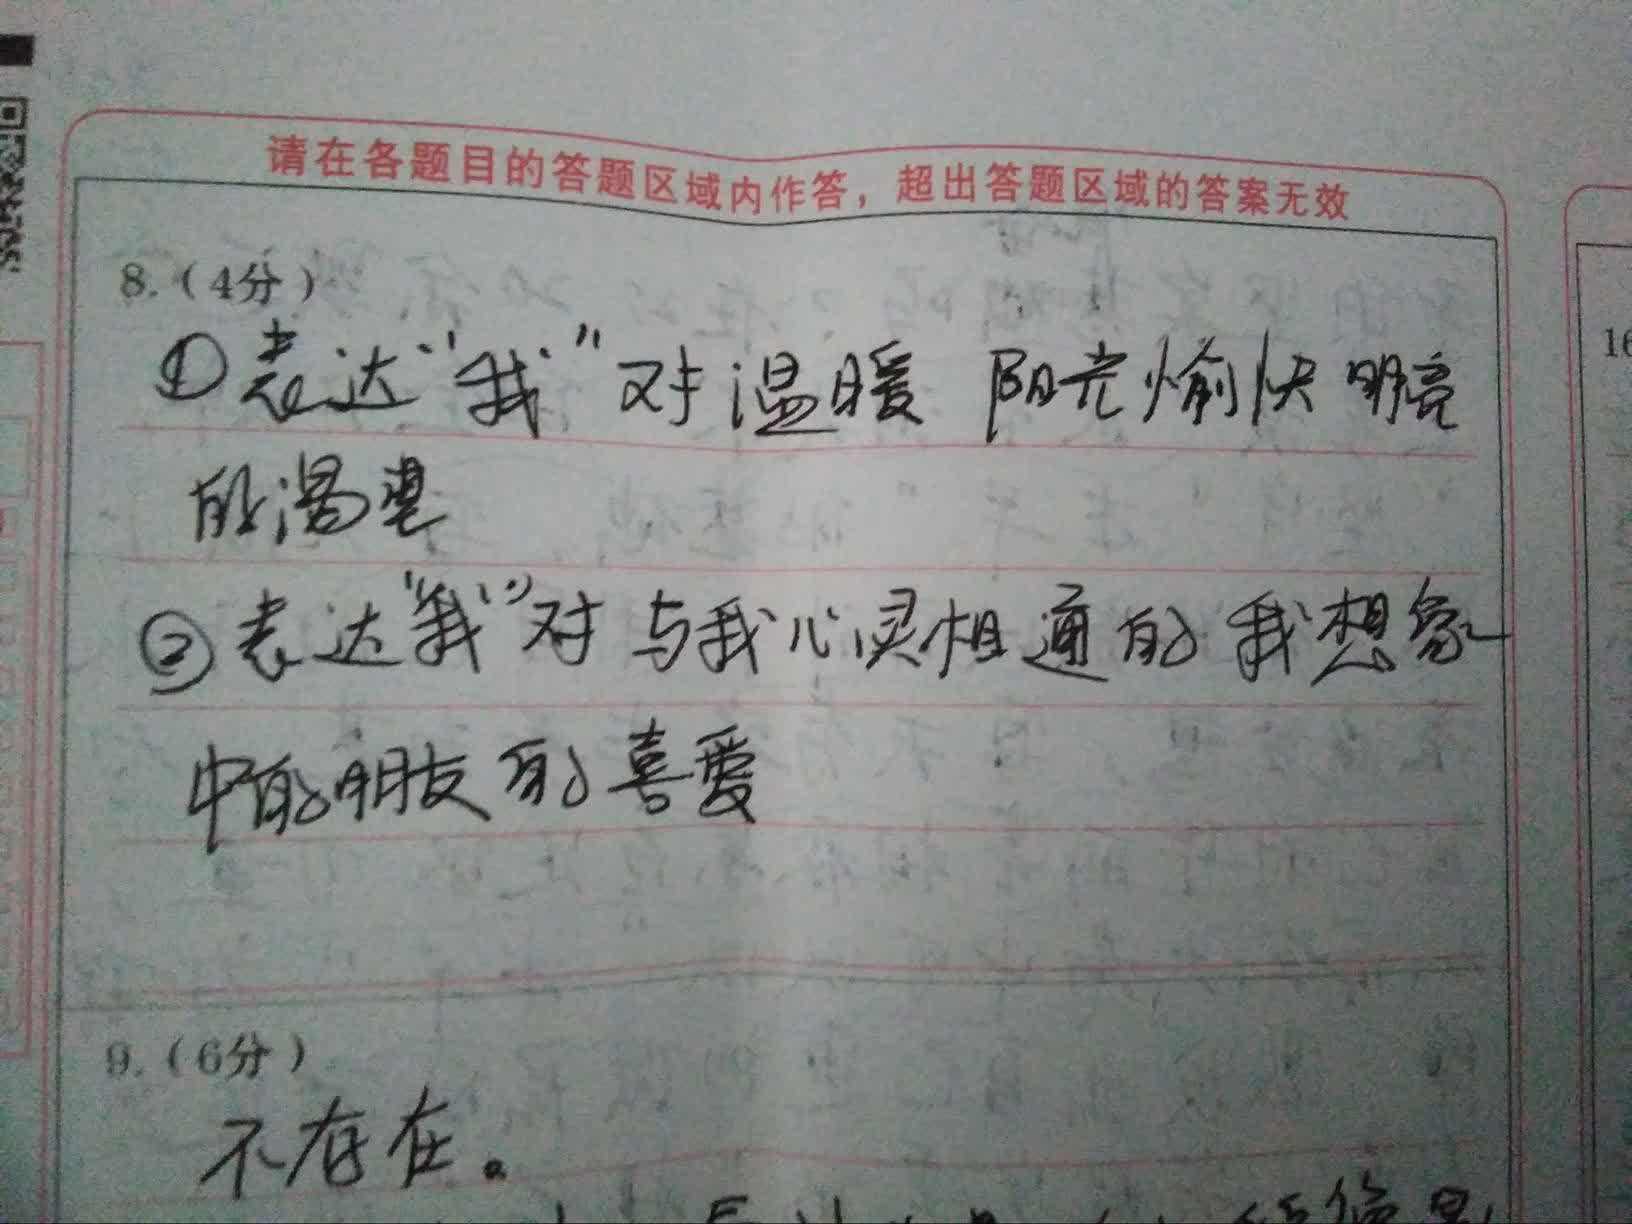 请在各题目的答题区域内作答，超出答题区域的答案无效
8.（4分）
①表达“我”对温暖 阳光愉快明亮
的渴望
②表达“我”对与我心灵相通的我想象
中的朋友的喜爱
9.（6分）
不存在。
16